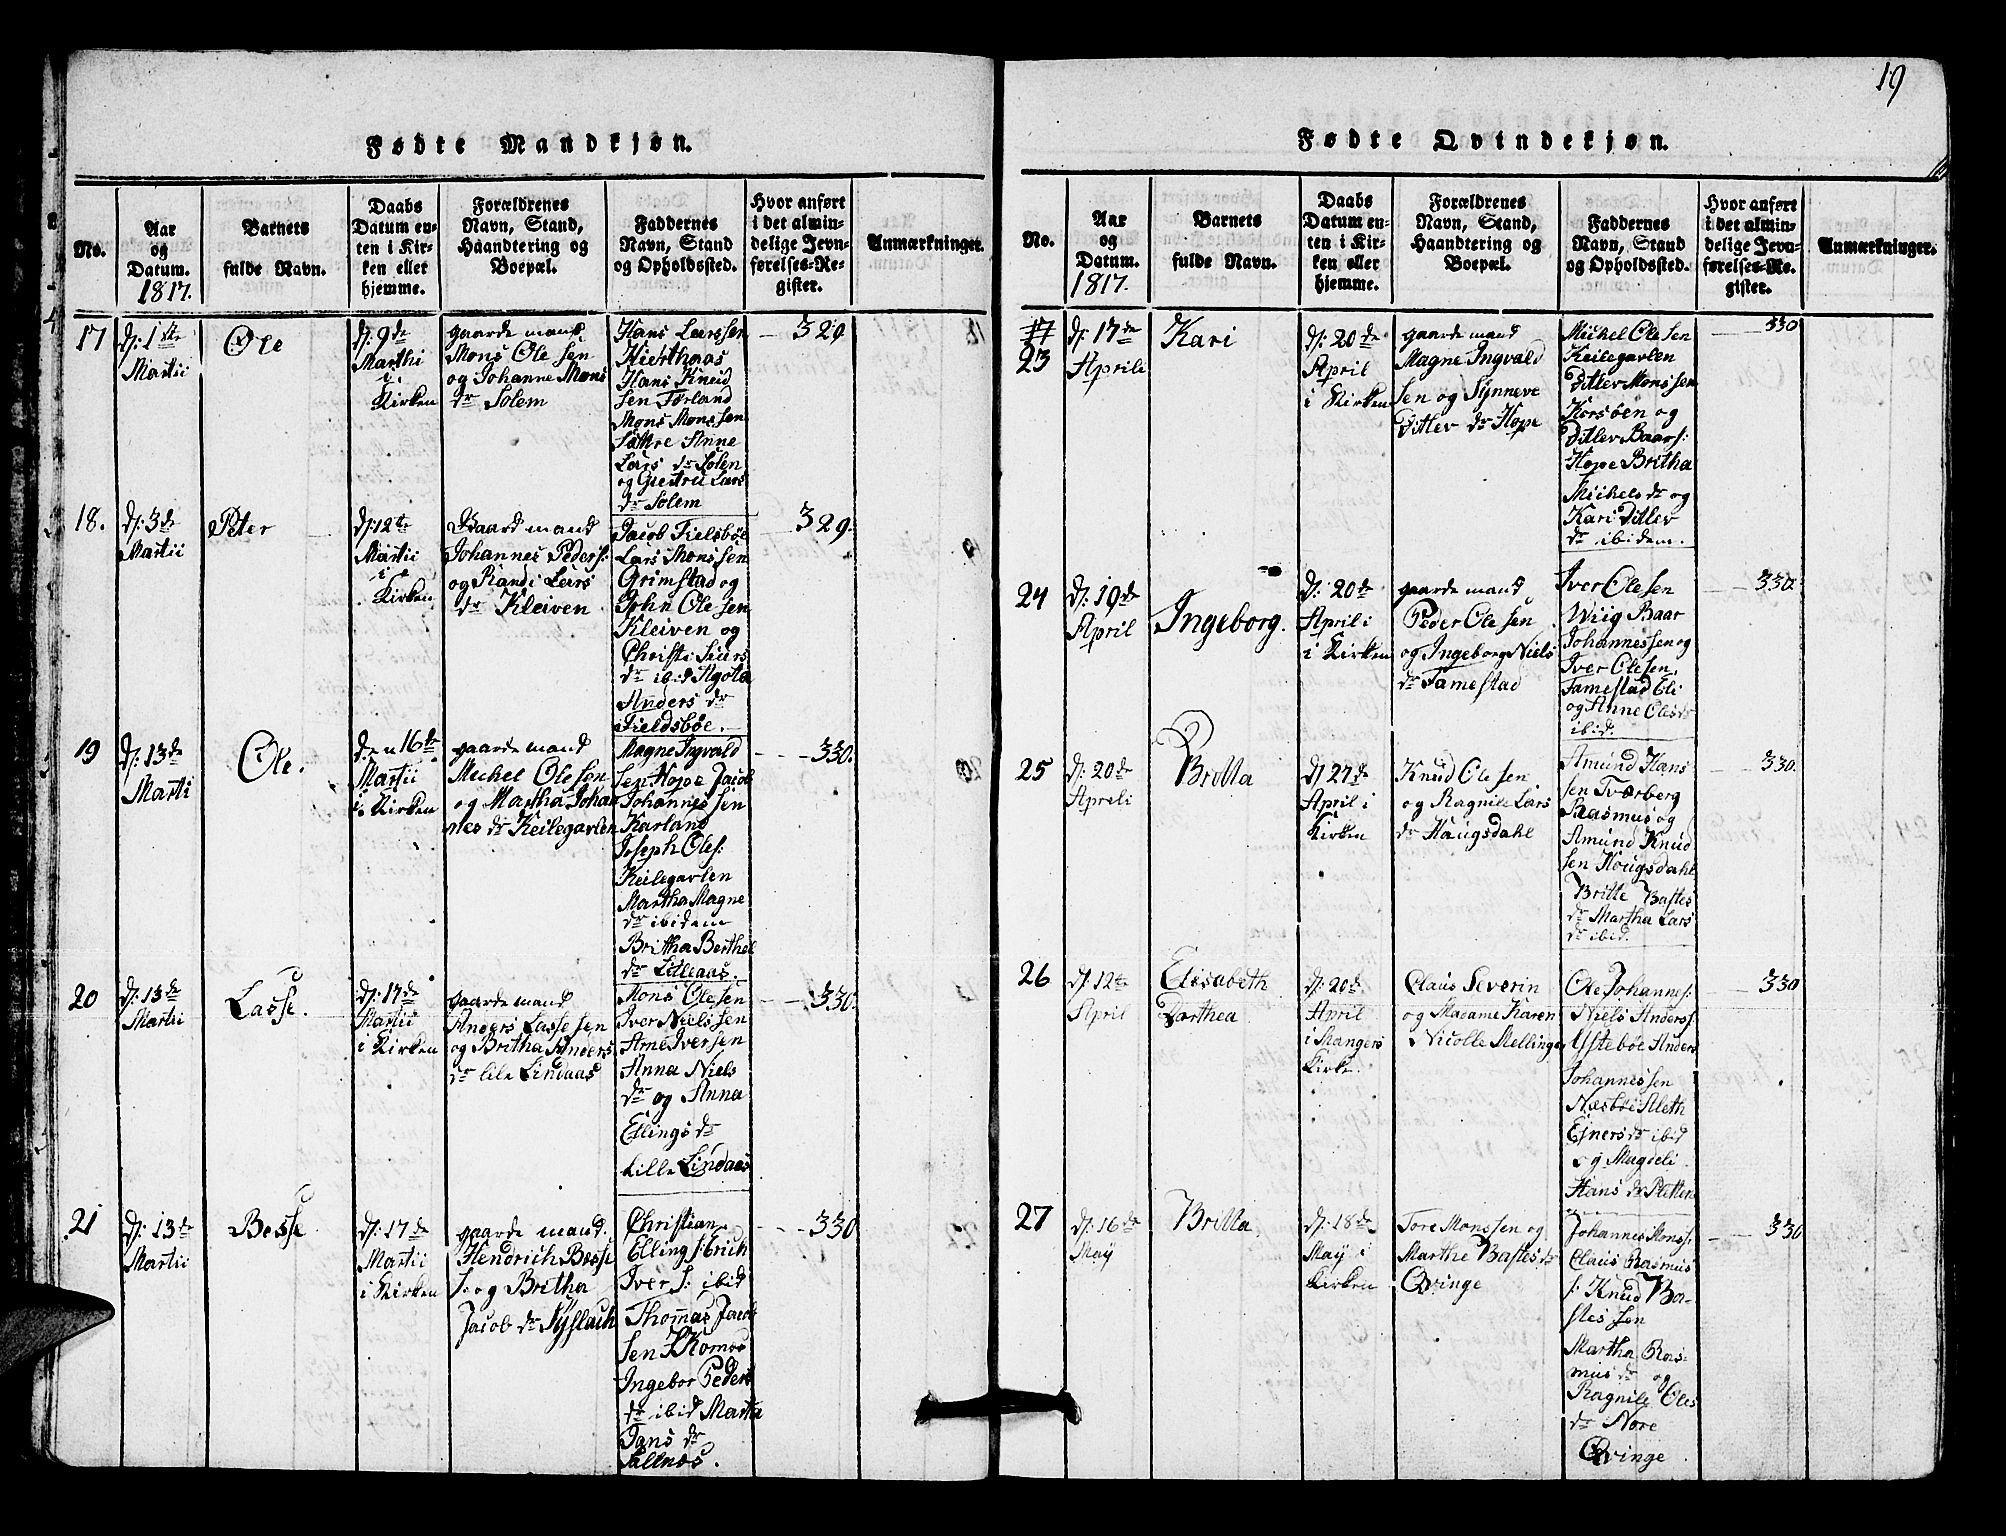 19
Fødte Mandkjøn.
No.
Aar
og
Datum.
1817.
Barnets
fulde Navn.
Daabs
Datum en-
ten i Kir-
ken eller
hjemme.
Forældrenes
Navn, Stand,
Haandtering og
Boepæl.
Faddernes
Navn, Stand
og Opholdssted.
Hvor anført
i det almin-
delige Jevn-
førelses-Re-
gister.
Anmærkninger.
17
d: 1ste
Martii
Ole
d: 9de
Marthi
i
Kirken
gaarde mand
Mons Ole sen
og Johanne Mons
dr Solem
Hans Larssen
Hierthaas
Hans Kneid
sen Førland
Mons Monssen
Sætre Anne
Lars dr Solen
og Giertru Lars
dr Solem
329
18.
d: 3de
Martii
Peter
d: 12te
Martii
i
Kirken
Gaard mand
Johannes Peders:
og Randi Lars
dr Kleiven
Jacob Fielsbøe
Lars Monssen
Grimstad og
John Olesen
Kleiven og
Christi Siurs
dr ibid Agota
Anders dr
Fieldsbøe.
329.
19
d: 13de
Marti
Ole.
den 16de
Martii
i Kirken
gaarde mand
Michel Olesen
og Martha Johan
nes dr Keilegavlen
Magne Ingvald
sen Hope Jacob
Johannes sen
Karland
Joseph Oles:
Keilegavlen
Martha Magne
dr ibidem
Britha Berthel
dr Lilleaas.
330.
20
d: 13de
Martii
Lasse.
d: 17de
Martii
i Kirken
gaarde mand
Anders Lasse sen
og Britha Anders
dr lile Lindaas
Mons Olesen
Iver Nielssen
Arne Iversen
Anna Niels
dr og Anna
Ellings dr
Lille Lindaas
330.
21
d: 13de
Martii
Besse
d: 17de
Martii
i Kirken
gaarde mand.
Hendrich Besse
s: og Britha
Jacob dr Sÿslach
Christian
Elling s: Erich
Iver s: ibid
Thomas Jacob
sen
Ingebor Peders
dr ibid Marta
Jans dr
Sallnæs.
330
Fødte Qvindekjøn.
No.
Aar
og
Datum.
1817.
Barnets
fulde Navn.
Daabs
Datum en-
ten i Kir-
ken eller
hjemme.
Forældrenes
Navn, Stand,
Haandtering og
Boepæl.
Faddernes
Navn, Stand
og Opholdssted.
Hvor anført
i det almin-
delige Jevn-
førelses-Re-
gister.
Anmærkninger.
17
23
d: 17de
Aprili
Kari
d: 20de
April
i Kirken
gaarde mand
Magne Ingvald
sen og Synneve
Ditlev dr Hope
Michel Olesen
Keilegavlen
Ditlev Monssen
Korsøen og
Ditlev Baars:
Hope Britha
Michels dr og
Kari Ditlev
dr ibidem.
330
24
d: 19de
April
Ingeborg.
d: 20de
April i
i Kirken
gaarde mand
Peder Olesen
og Ingeborg Niels
dr Famestad
Iver Olesen
Wiig Baar
Johannessen og
Iver Olesen
Famestad Eli
og Anne Olesdr
ibid.
330.
25
d: 20de
Apreli
Britta
d: 27de
April i
Kirken
Knud Olesen
og Ragnile Lars
dr Haugsdahl
Amund Hans
sen Tværberg
Rasmus og
Amund Knud
sen Hougsdahl
Britte Bastes
dr Martha Lars
dr ibid.
330.
26
d: 12te
April
Elisabeth
Dorthea
d: 20de
April
i Mangers
Kirke.
Claus Severin
og Madame Karen
Nicolle Mellinge
Ole Johannes:
Niels Anders:
Ystebøe Anders
Johannes sen
Næsbøe Aleth
Ejners dr ibid
og Magdeli
Hans dr Sletten
330
27
d: 16de
Maÿ
Britta
d: 18de
Maÿ i
Kirken
Tore Monssen og
Marthe Bastes dr
Qvinge
Johannes Mons:
Claus Rasmus
s: Knud Ba-
stes sen
Martha Ras-
mus dr og
Ragnile Oles
dr Nore
Qvinge
330